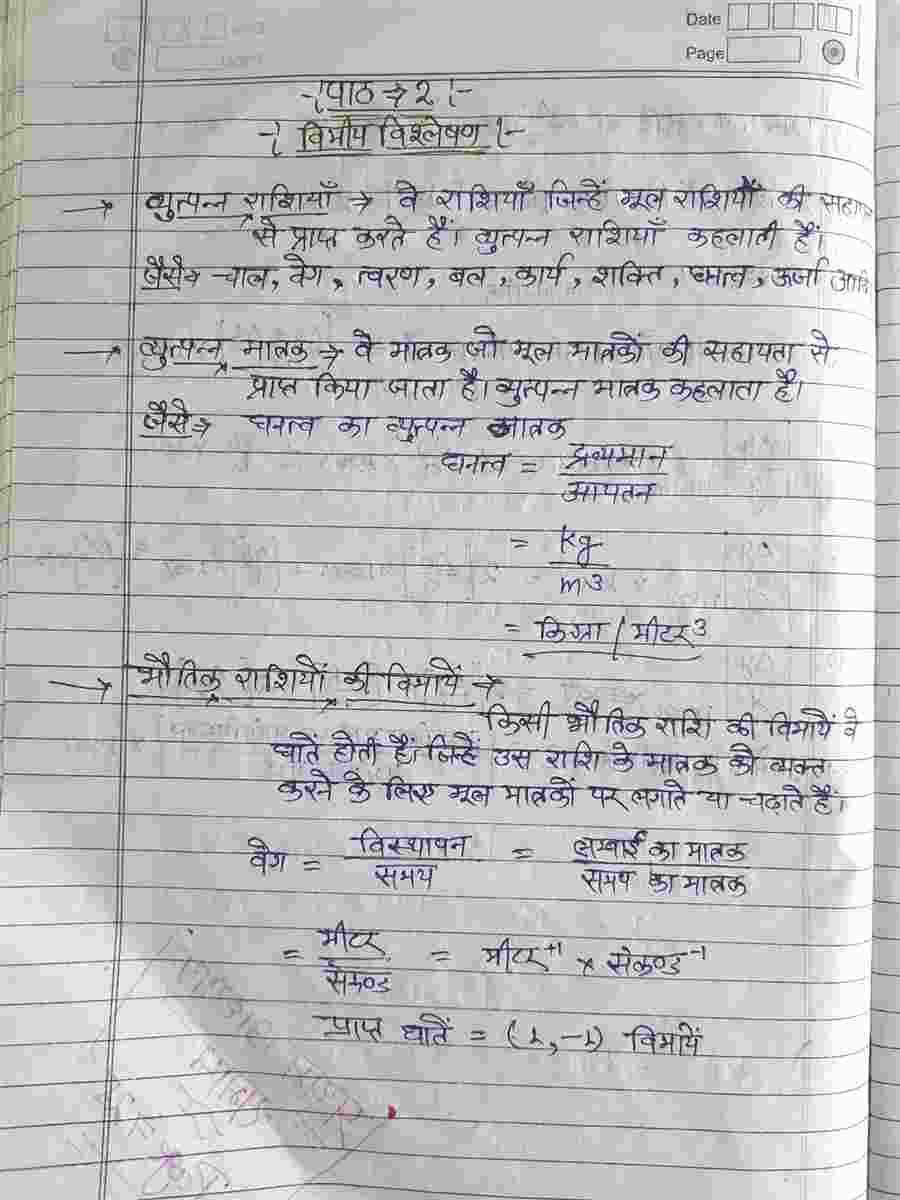 Date
Page
-। पाठ → 2 ।-
-। विमीय विश्लेषण ।-
→ व्युत्पन्न राशियाँ → वे राशियाँ जिन्हें मूल राशियों की
से प्राप्त करते हैं। व्युत्पन्न राशियाँ कहलाती हैं।
जैसे→ चाल, वेग, त्वरण, बल, कार्य, शक्ति, घनत्व, ऊर्जा आदि
→ व्युत्पन्न मात्रक → वे मात्रक जो मूल मात्रकों की सहायता से
प्राप्त किया जाता है। व्युत्पन्न मात्रक कहलाता है।
जैसे→ घनत्व का व्युत्पन्न मात्रक
घनत्व = द्रव्यमान
आयतन
= kg
m3
= किग्रा / मीटर3
→ भौतिक राशियों की विमायें →
किसी भौतिक राशि की विमायें वे
घातें होती हैं। जिन्हें उस राशि के मात्रक को व्यक्त
करने के लिए मूल मात्रकों पर लगाते या चढ़ाते हैं।
वेग = विस्थापन = लम्बाई का मात्रक
समय समय का मात्रक
= मीटर = मीटर+1 × सेकण्ड-1
सेकण्ड
प्राप्त घातें = (1, -1) विमायें